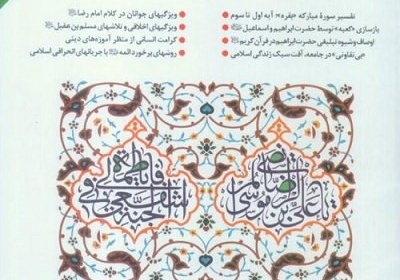 تفسیر سورهٔ مبارکه «بقره»؛ آیه اول تا سوم
بازسازی «کعبه» توسط حضرت ابراهیم و اسماعیل
اوصاف و شیوه تبلیغی حضرت ابراهیم در قرآن کریم
«بی‌تفاوتی» در جامعه، آفت سبک زندگی اسلامی
ویژگیهای جوانان در کلام امام رضا
ویژگیهای اخلاقی و تلاشهای مسلم بن عقیل
کرامت انسانی از منظر آموزه‌های دینی
روشهای برخورد ائمه با جریانهای انحرافی اسلامی
یا علی بن موسی الرضا
یا فاطمة اشفعی لی فی الجنة